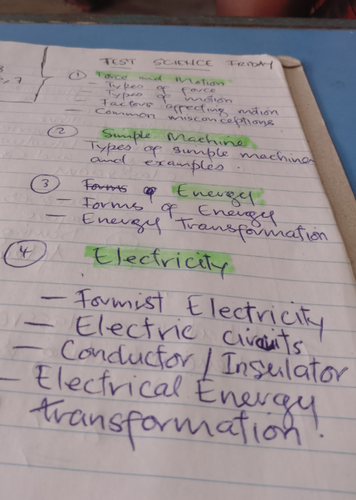 TEST SCIENCE FRIDAY
① Force and Motion
- Types of force
- Types of motion
- Factors affecting motion
- Common misconceptions
② Simple Machine
Types of simple machine
and examples.
③ Forms of Energy
- Forms of Energy
- Energy Transformation
④ Electricity
- Formist Electricity
- Electric circuits
- Conductor / Insulator
- Electrical Energy
transformation.